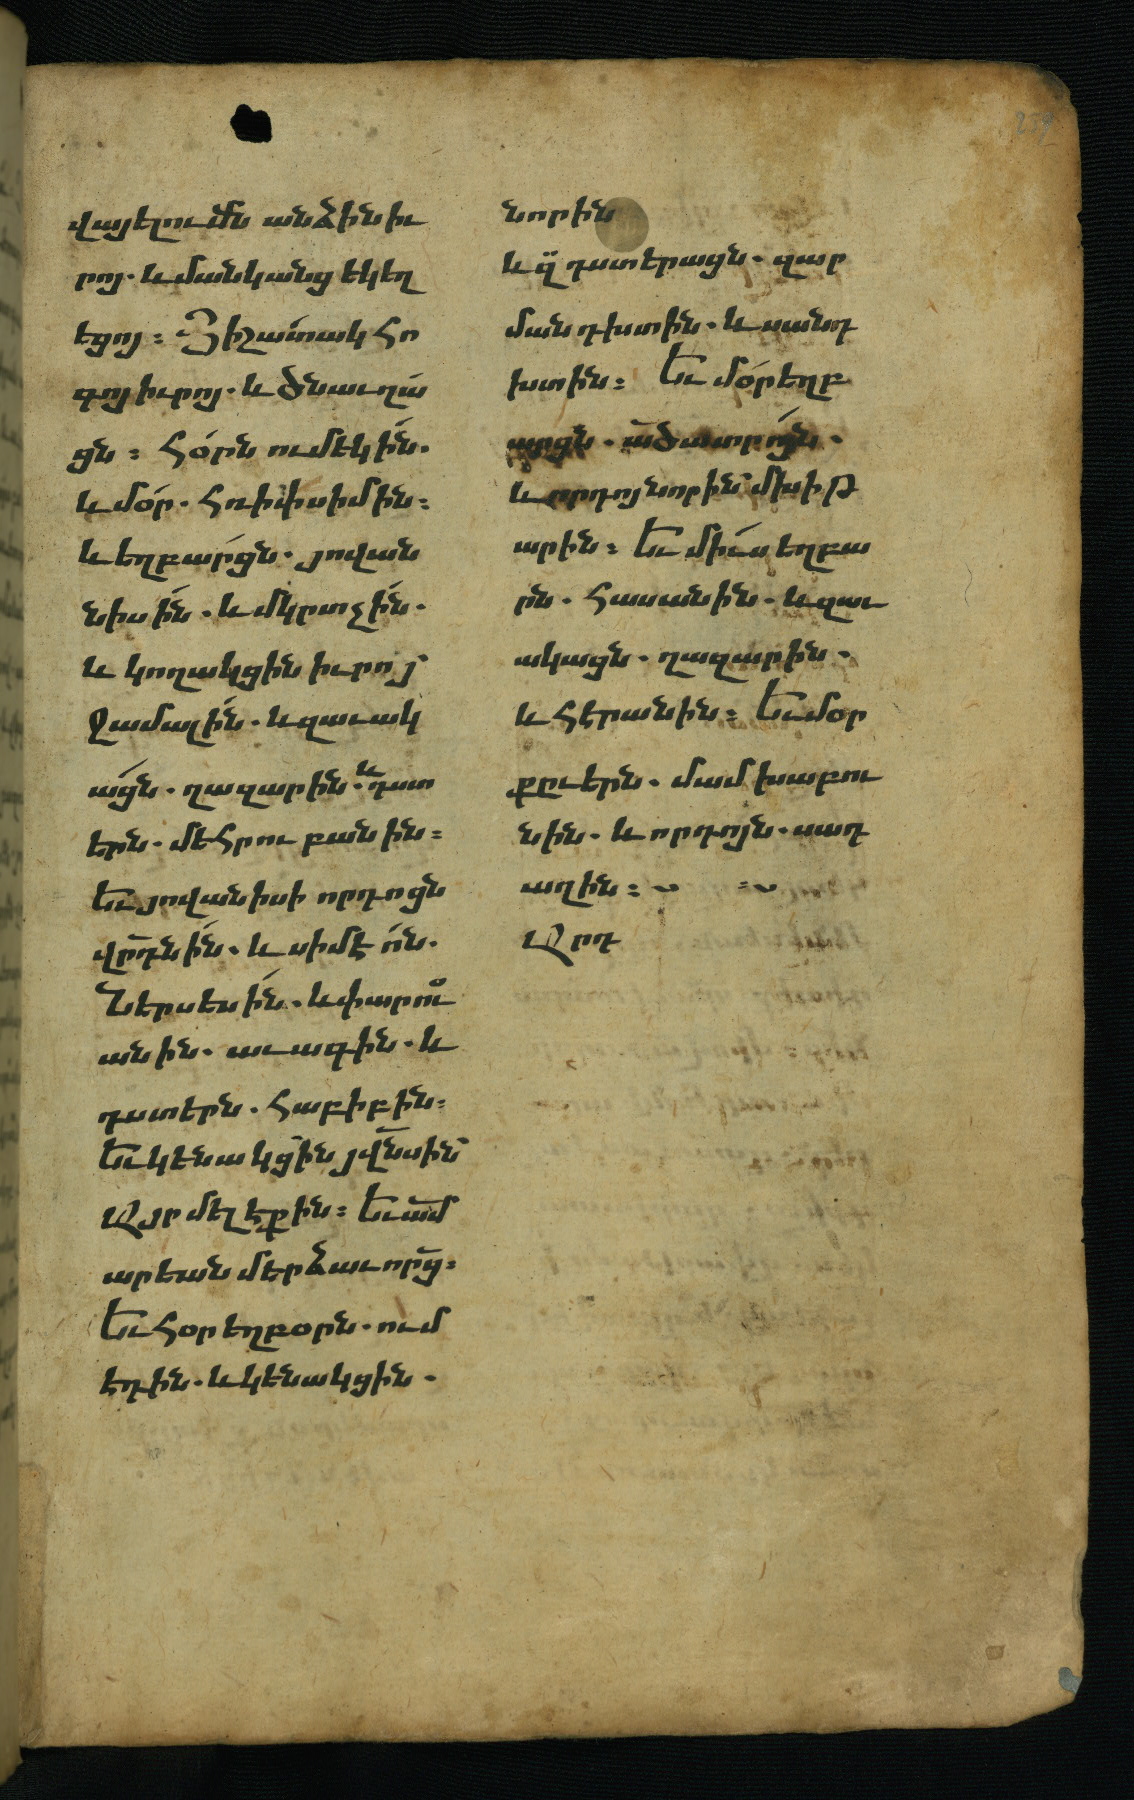 վայելումն անձինիւ
րոյ. և մանկանց եկեղ
եցոյ։ Յիշատակ հո
գոյ իւրոյ. և ծնաւղա
ցն։ հօրն ումեկին.
և մօր. հռիփսիմին։
և եղբարցն. յովան
նիսին. և մկրտչին.
և կողակցին իւրոյ
Ջամալին. և զաւակ
ացն. ղազարին. և դստ
երն. մէհրուբանին։
Եւ յովանիսի որդոցն
վրդնին. և սիմէոն.
Ներսեսին. և փարու
անին. աւագին. և
դստերն. հաբիբին։
Եւ կենակցին յվնսին
Ա մելեքին։ Եւ ամ
արեան մերձաւորց։
Եւ հօր եղբօրն. ում
եդին. և կենակցին.
նորին
և դստերացն. զար
մանդխտին. և սանդ
խտին։ Եւ մօր եղբ
արցն. ածատրոյն.
և որդոյ նորին մխիթ
արին։ Եւ միւս եղբա
րն. հասանին. և զաւ
ակացն. ղազարին.
և հէրանին։ Եւ մօր
քըւերն. մամխաթու
նին. և որդոյն. սադ
աղին։